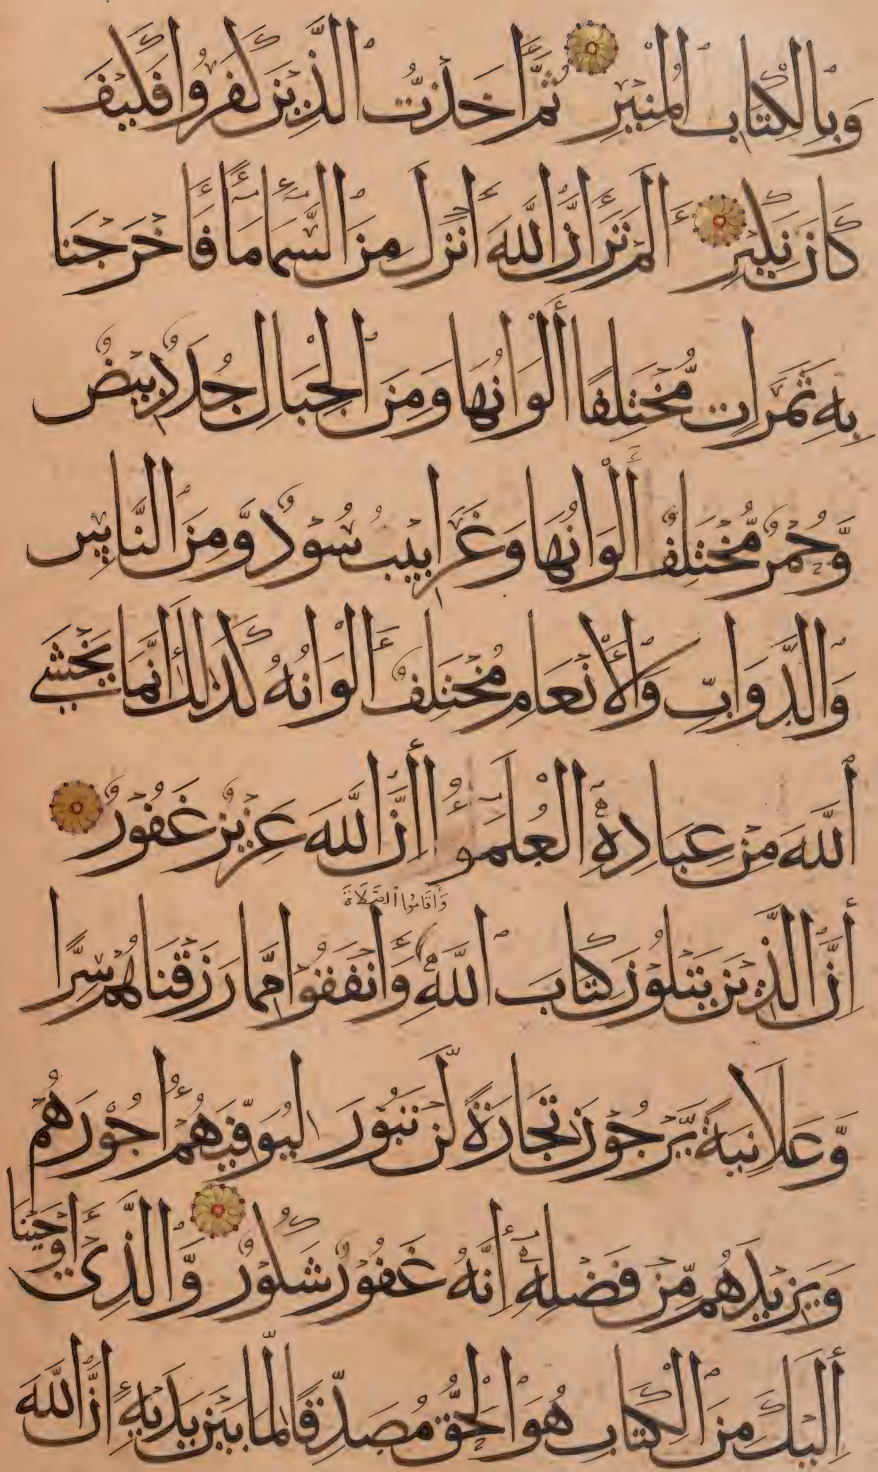 وَبِالْكِتَابِ الْمُنِيرِ ثُمَّ أَخَذْتُ الَّذِينَ كَفَرُوا فَكَيْفَ
كَانَ نَكِيرِ أَلَمْ تَرَ أَنَّ اللَّهَ أَنْزَلَ مِنَ السَّمَاءِ مَاءً فَأَخْرَجْنَا
بِهِ ثَمَرَاتٍ مُّخْتَلِفًا أَلْوَانُهَا وَمِنَ الْجِبَالِ جُدَدٌ بِيضٌ
وَّحُمْرٌ مُّخْتَلِفٌ أَلْوَانُهَا وَغَرَابِيبُ سُودٌ وَّمِنَ النَّاسِ
وَالدَّوَابِّ وَالْأَنْعَامِ مُخْتَلِفٌ أَلْوَانُهُ كَذَلِكَ إِنَّمَا يَخْشَى
اللَّهَ مِنْ عِبَادِهِ الْعُلَمَؤُا إِنَّ اللَّهَ عَزِيزٌ غَفُورٌ
وَأَقَامُوا الصَّلَاةَ
إِنَّ الَّذِينَ يَتْلُونَ كِتَابَ اللَّهِ وَأَنْفَقُوا مِمَّا رَزَقْنَاهُمْ سِرًّا
وَّعَلَانِيَةً يَّرْجُونَ تِجَارَةً لَّنْ تَبُورَ لِيُوَفِّيَهُمْ أُجُورَهُمْ
وَيَزِيدَهُمْ مِّنْ فَضْلِهِ إِنَّهُ غَفُورٌ شَكُورٌ وَّالَّذِي أَوْحَيْنَا
إِلَيْكَ مِنَ الْكِتَابِ هُوَ الْحَقُّ مُصَدِّقًا لِّمَا بَيْنَ يَدَيْهِ إِنَّ اللَّهَ